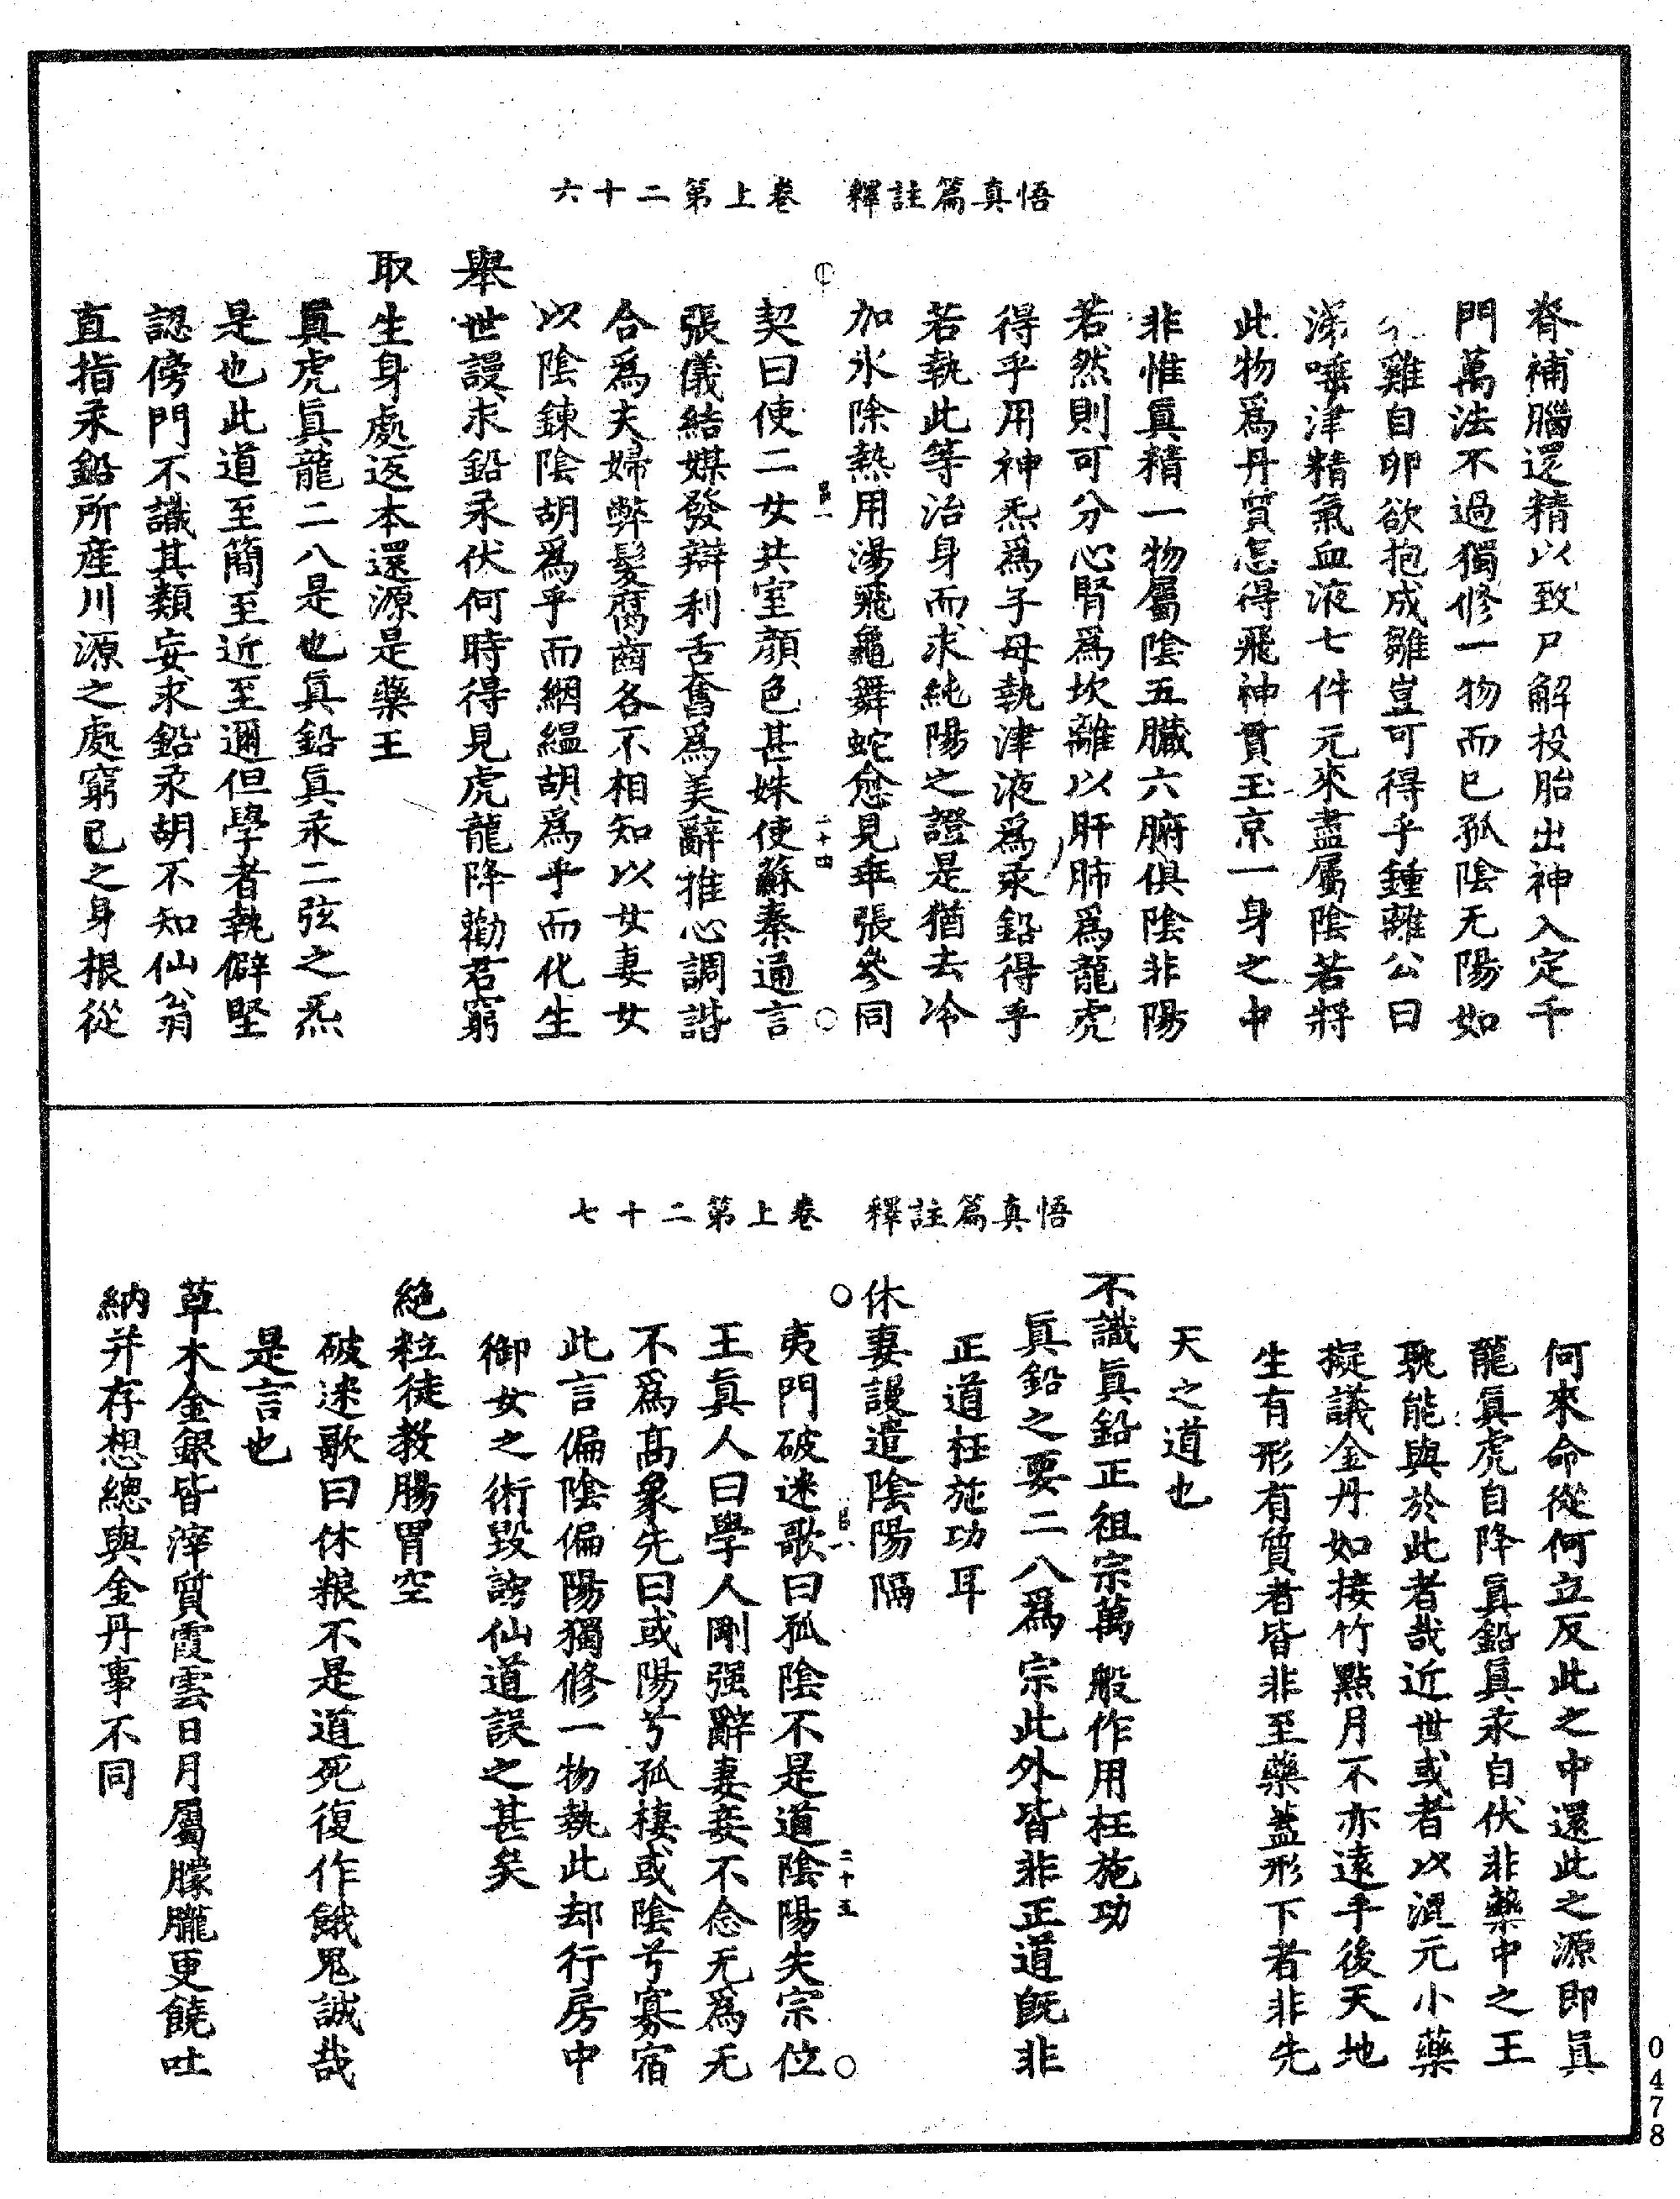 悟真篇註釋　卷上第二十六
脊補腦還精以致尸解投胎出神入定千
門萬法不過獨修一物而已孤陰无陽如
雞自卵欲抱成雛豈可得乎鍾離公曰
涕唾津精氣血液七件元來盡屬陰若將
此物爲丹質怎得飛神貫玉京一身之中
非惟眞精一物屬陰五臟六腑俱陰非陽
若然則可分心腎爲坎離以肝肺爲龍虎
得乎用神炁爲子母執津液爲汞鉛得乎
若執此等治身而求純陽之證是猶去冷
加氷除熱用湯飛龜舞蛇愈見乖張參同
昌一　二十四
契曰使二女共室顔色甚姝使蘇秦通言
張儀結媒發辯利舌奮爲美辭推心調諧
合爲夫婦弊髮腐齒各不相知以女妻女
以陰鍊陰胡爲乎而絪縕胡爲乎而化生
舉世謾求鉛汞伏何時得見虎龍降勸君窮
取生身處返本還源是藥王
眞虎眞龍二八是也眞鉛眞汞二弦之炁
是也此道至簡至近至邇但學者執僻堅
認傍門不識其類妄求鉛汞胡不知仙翁
直指汞鉛所産川源之處窮已之身根從
悟真篇註釋　卷上第二十七
何來命從何立反此之中還此之源即眞
龍眞虎自降眞鉛眞汞自伏非藥中之王
孰能與於此者哉近世或者以混元小藥
擬議金丹如接竹點月不亦遠乎後天地
生有形有質者皆非至藥蓋形下者非先
天之道也
不識眞鉛正祖宗萬般作用枉施功
眞鉛之要二八爲宗此外皆非正道旣非
正道枉施功耳
休妻謾遣陰陽隔
昌一　二十五
夷門破迷歌曰孤陰不是道陰陽失宗位
王眞人曰學人剛强辭妻妾不念无爲无
不爲高象先曰或陽兮孤棲或陰兮寡宿
此言偏陰偏陽獨修一物執此却行房中
御女之術毀謗仙道誤之甚矣
絕粒徒教腸胃空
破迷歌曰休粮不是道死復作餓鬼誠哉
是言也
草木金銀皆滓質霞雲日月屬朦朧更饒吐
納并存想總與金丹事不同
0478